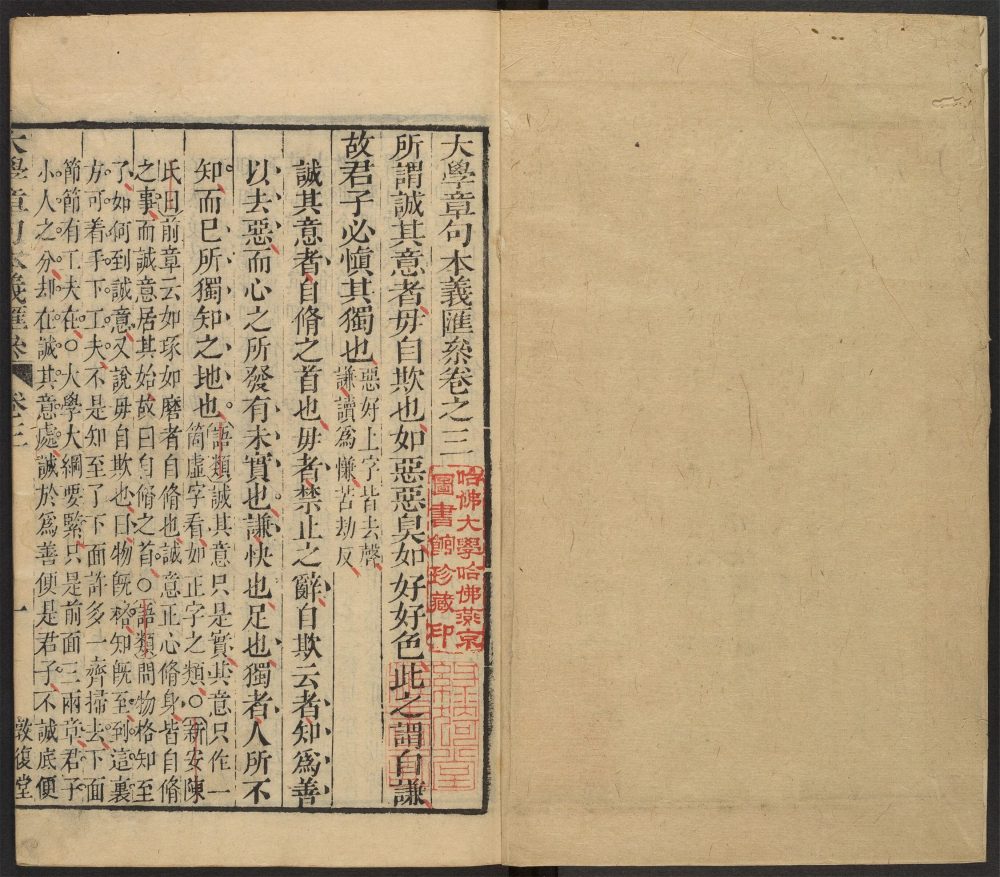 大學章句本義匯叅卷之三
所謂誠其意者毋自欺也如惡惡臭如好好色此之謂自謙
故君子必愼其獨也
惡好上字皆去聲
謙讀爲慊苦劫反
誠其意者自脩之首也毋者禁止之辭自欺云者知爲善
以去惡而心之所發有未實也謙快也足也獨者人所不
知而已所獨知之地也
語類誠其意只是實其意只作一
箇虛字看如正字之類○新安陳
氏曰前章云如琢如磨者自脩也誠意正心脩身皆自脩
之事而誠意居其始故曰自脩之首○語類問物格知至
了如何到誠意又說毋自欺也曰物旣格知旣至到這裏
方可着手下工夫不是知至了下面許多一齊掃去下面
節節有工夫在○大學大綱要緊只是前面三兩章君子
小人之分却在誠其意處誠於爲善便是君子不誠底便
大學章句本義匯叅 卷三 一 敦復堂
哈佛大學哈佛燕京
圖書館珍藏印